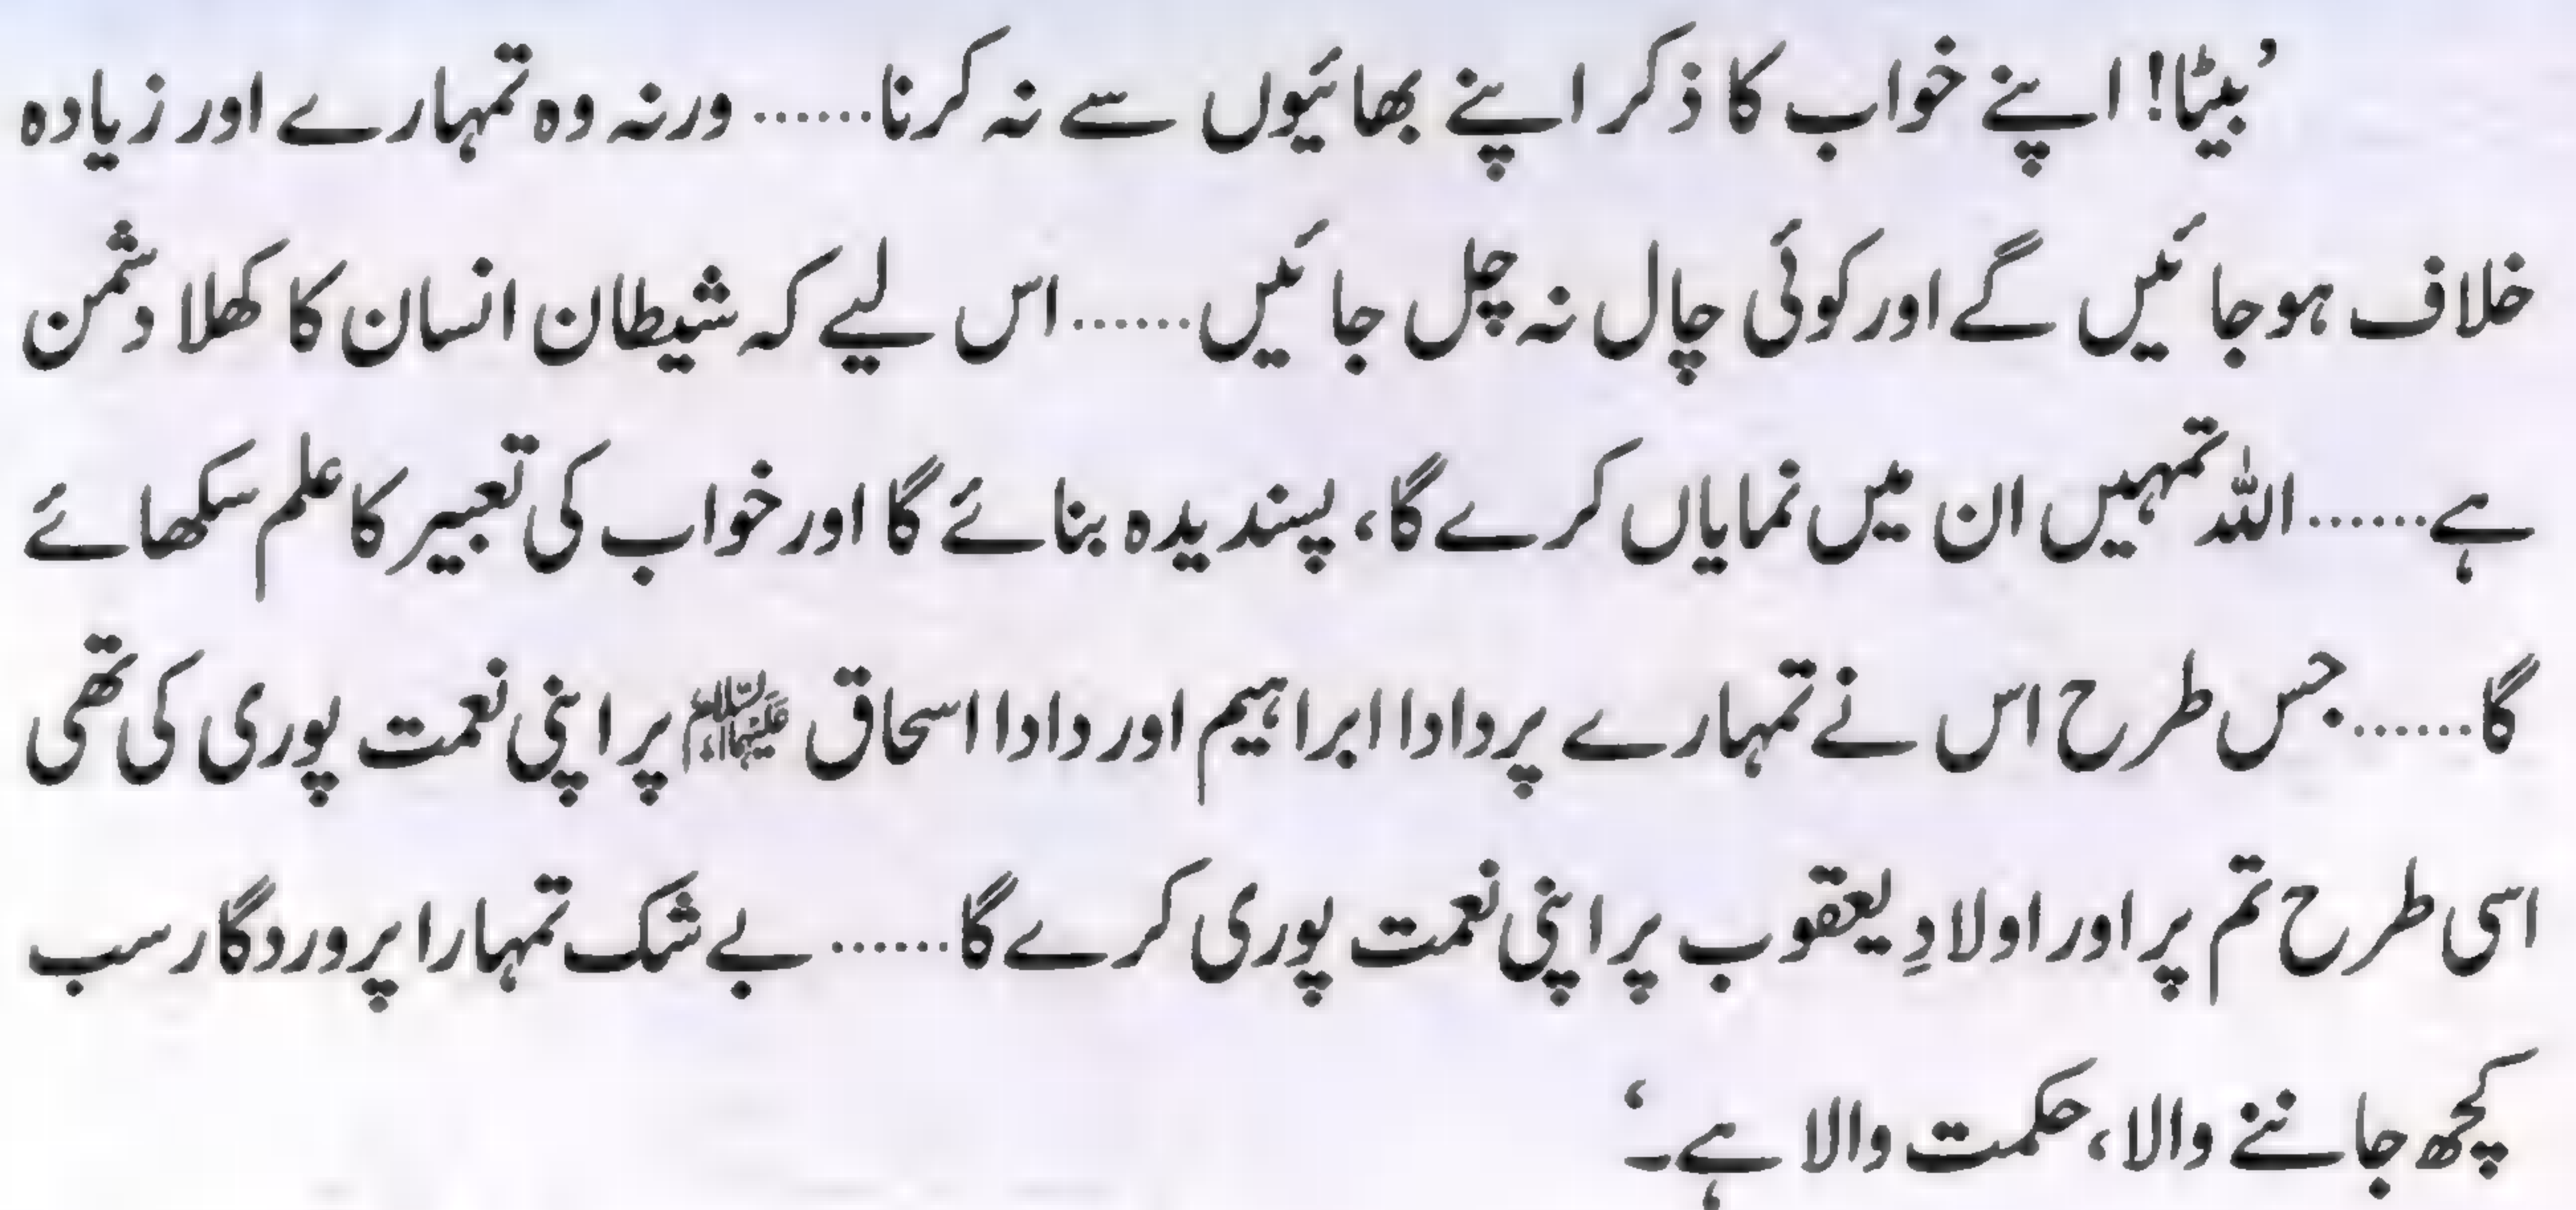 ’بیٹا! اپنے خواب کا ذکر اپنے بھائیوں سے نہ کرنا...... ورنہ وہ تمہارے اور زیادہ
خلاف ہو جائیں گے اور کوئی چال نہ چل جائیں...... اس لیے کہ شیطان انسان کا کھلا دشمن
ہے...... اللہ تمہیں ان میں نمایاں کرے گا، پسندیدہ بنائے گا اور خواب کی تعبیر کا علم سکھائے
گا...... جس طرح اس نے تمہارے پردادا ابراہیم اور دادا اسحاق علیہما السلام پر اپنی نعمت پوری کی تھی
اسی طرح تم پر اور اولادِ یعقوب پر اپنی نعمت پوری کرے گا...... بے شک تمہارا پروردگار سب
کچھ جاننے والا، حکمت والا ہے۔‘